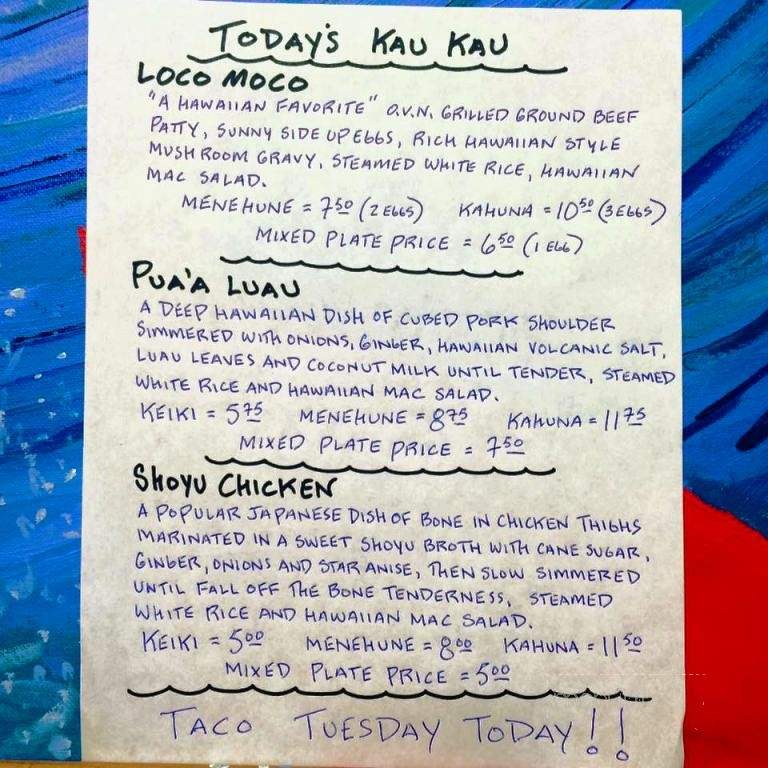 TODAY'S KAU KAU
LOCO MOCO
"A HAWAIIAN FAVORITE" O.V.N. GRILLED GROUND BEEF
PATTY, SUNNY SIDE UP EGGS, RICH HAWAIIAN STYLE
MUSHROOM GRAVY, STEAMED WHITE RICE, HAWAIIAN
MAC SALAD.
MENEHUNE = 7.50 (2 EGGS) KAHUNA = 10.50 (3 EGGS)
MIXED PLATE PRICE = 6.50 (1 EGG)
PUA'A LUAU
A DEEP HAWAIIAN DISH OF CUBED PORK SHOULDER
SIMMERED WITH ONIONS, GINGER, HAWAIIAN VOLCANIC SALT,
LUAU LEAVES AND COCONUT MILK UNTIL TENDER, STEAMED
WHITE RICE AND HAWAIIAN MAC SALAD.
KEIKI = 5.75 MENEHUNE = 8.75 KAHUNA = 11.75
MIXED PLATE PRICE = 7.50
SHOYU CHICKEN
A POPULAR JAPANESE DISH OF BONE IN CHICKEN THIGHS
MARINATED IN A SWEET SHOYU BROTH WITH CANE SUGAR,
GINGER, ONIONS AND STAR ANISE, THEN SLOW SIMMERED
UNTIL FALL OFF THE BONE TENDERNESS, STEAMED
WHITE RICE AND HAWAIIAN MAC SALAD.
KEIKI = 5.00 MENEHUNE = 8.00 KAHUNA = 11.50
MIXED PLATE PRICE = 5.00
TACO TUESDAY TODAY!!